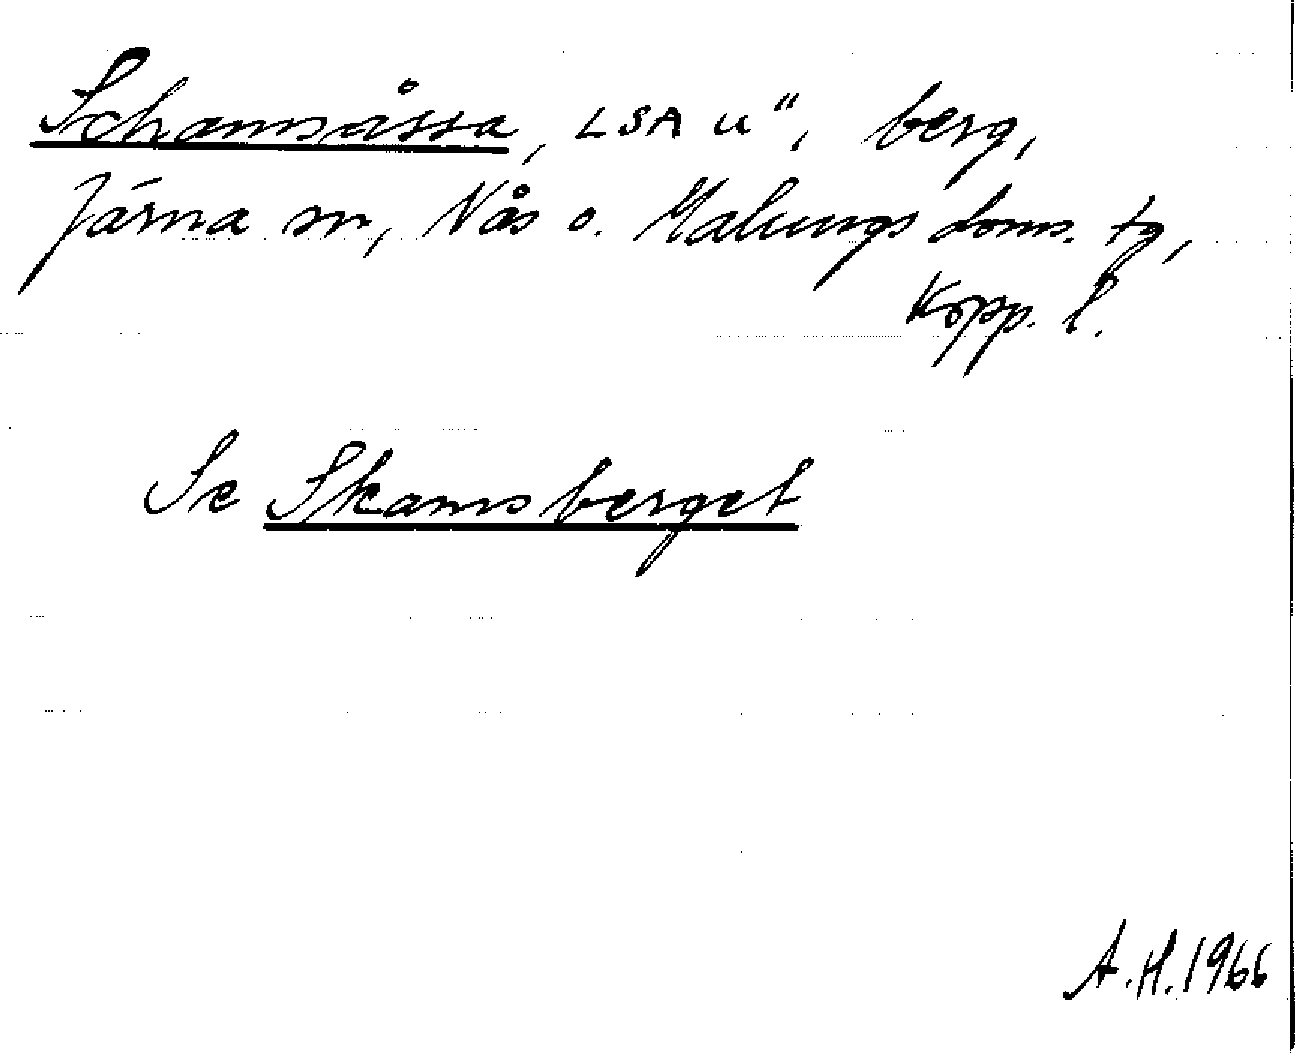 Schamsåssa, LSA u", berg,
Järna sn, Nås o. Malungs doms. tg,
Kopp. l.
Se Skamsberget
A.H. 1966